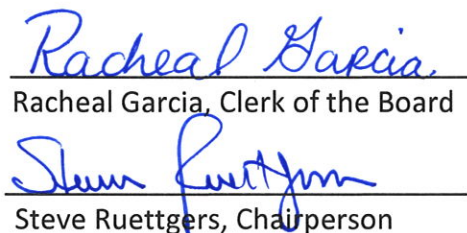 Racheal Garcia.
Racheal Garcia, Clerk of the Board
Steve Ruettgers
Steve Ruettgers, Chairperson